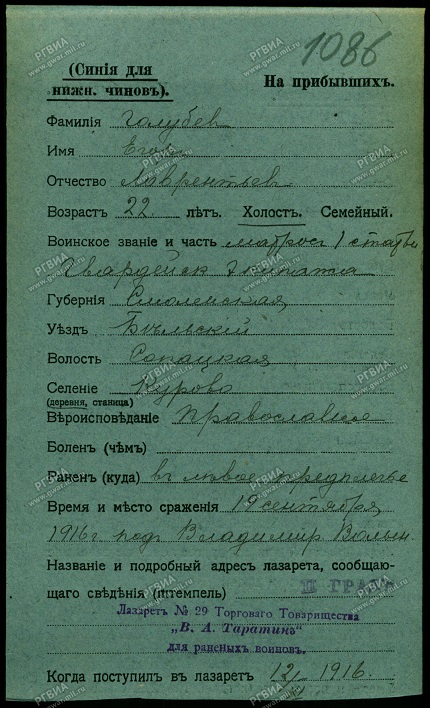 1086
(Синія для
нижн. чиновъ).
На прибывшихъ.
Фамилія Галубев
Имя Егор
Отчество Лаврентьев
Возрастъ 22 лѣтъ. Холостъ. Семейный.
Воинское званіе и часть матрос 1 статьи
Гвардейск Экипажа
Губернія Смоленская
Уѣздъ Бѣльскій
Волость Сопацкая
Селеніе Курово
(деревня, станица)
Вѣроисповѣданіе Православное
Боленъ (чѣмъ)
Раненъ (куда) въ лѣвое предплечье
Время и мѣсто сраженія 19 сентября
1916 г под Владимир Волын
Названіе и подробный адресъ лазарета, сообщаю-
щаго свѣдѣнія (штемпель)
Лазаретъ № 29 Торговаго Товарищества
„В. А. Таратинъ"
для раненыхъ воиновъ.
Когда поступилъ въ лазаретъ 12/XI 1916.
РГВИА
www.gwar.mil.ru